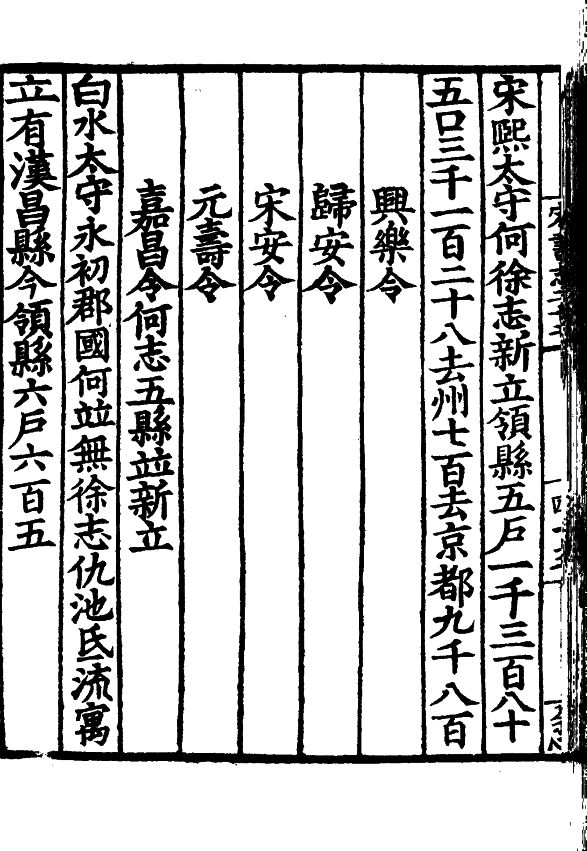 宋熙太守何徐志新立領縣五戶一千三百八十
五口三千一百二十八去州七百去京都九千八百
興樂令
歸安令
宋安令
元壽令
嘉昌令何志五縣竝新立
白水太守永初郡國何竝無徐志仇池氐流寓
立有漢昌縣今領縣六戶六百五